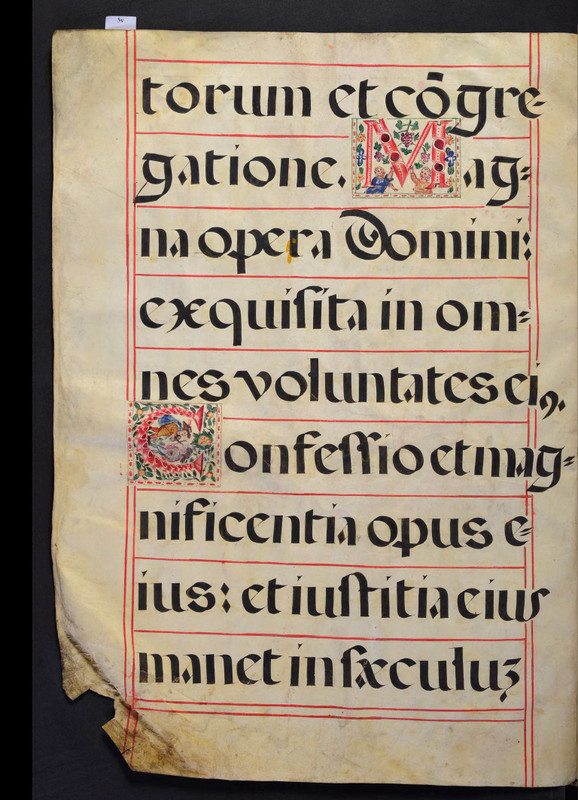 torum et cōgre-
gatione. Mag-
na opera Domini:
exquiſita in om-
nes voluntates eiꝰ.
Confeſſio et mag-
nificentia opus e-
ius: et iuſtitia eius
manet in ſæculuʒ